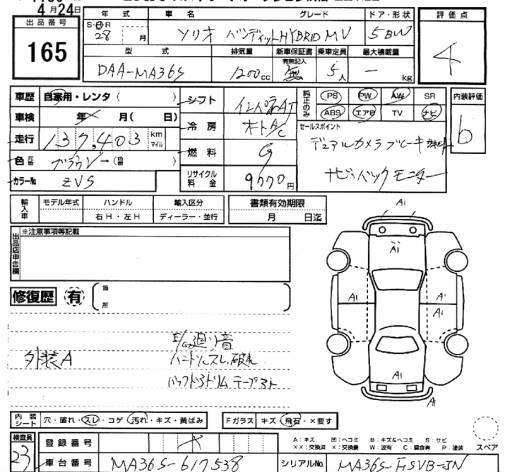 4月24日
出品番号
165
年式 車名 グレード ドア・形状 評価点
S・H・R 28 月 ソリオ バンディット HYBRID MV 5 BW
4
型式 排気量 新車保証書 有無記入 乗車定員 最大積載量
DAA-MA36S 1200cc 無 5人 — kg
車歴 自家用・レンタ( ) シフト インパネAT
PS PW AW SR 内装評価
車検 年 月( 日) 冷房 オートAC
ABS エアB TV ナビ
b
走行 137,403 km マイル
セールスポイント
燃料 G
デュアルカメラブレーキ
色 ブラウン
カラーNo ZVS リサイクル料金 9770円
ナビ バックモニター
輸入車 モデル年式 ハンドル 輸入区分 書類有効期限
右H・左H ディーラー・並行 月 日迄
出品店申告欄 ※注意事項等記載
修復歴 有 箇所
A1
A1
A1 A1
A1
A1
外装A
E/G廻り音
ハンドルスレ、破れ
バックドアトリム テープ
内装シート 穴・破れ・スレ・コゲ・汚れ・キズ・黄ばみ Fガラス キズ・飛石・×要す
スペア
検査員 23
登録番号
A:キズ E:ヘコミ B:キズ&ヘコミ S:サビ
××:交換済 ×:要交換 W:波有 C:腐食有 P:塗装
車台番号 MA36S-617538 シリアルNo. MA36S-FSVB-JN